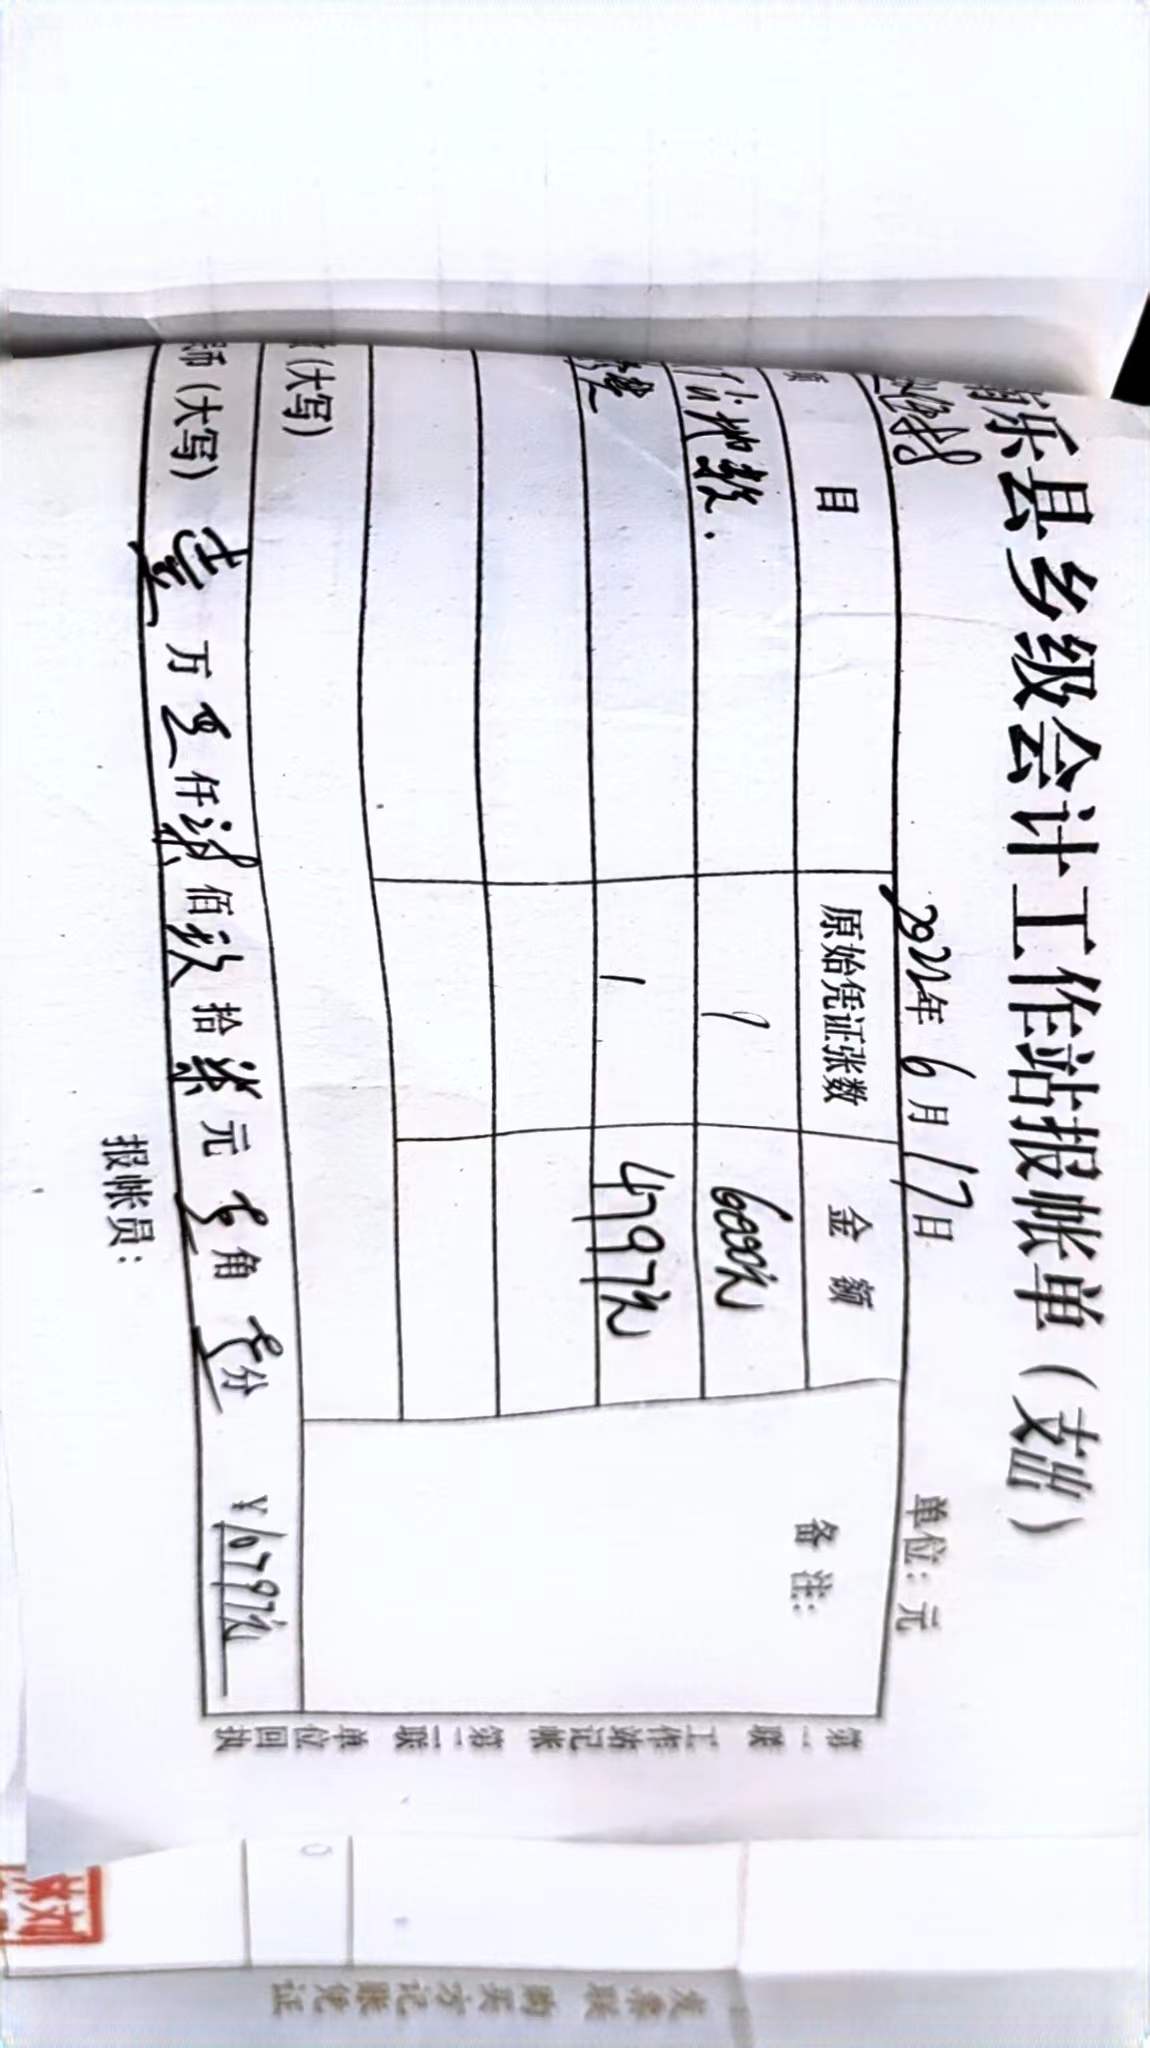 乐县乡级会计工作站报帐单（支出）
2022年6月17日 单位：元
目 原始凭证张数 金额 备注：
地款. 1 6000元
1 4797元
(大写)
(大写) 壹万零仟柒佰玖拾柒元零角零分 ¥10797元
报帐员：
第一联 工作站记帐 第二联 单位回执
发票联 购买方记账凭证